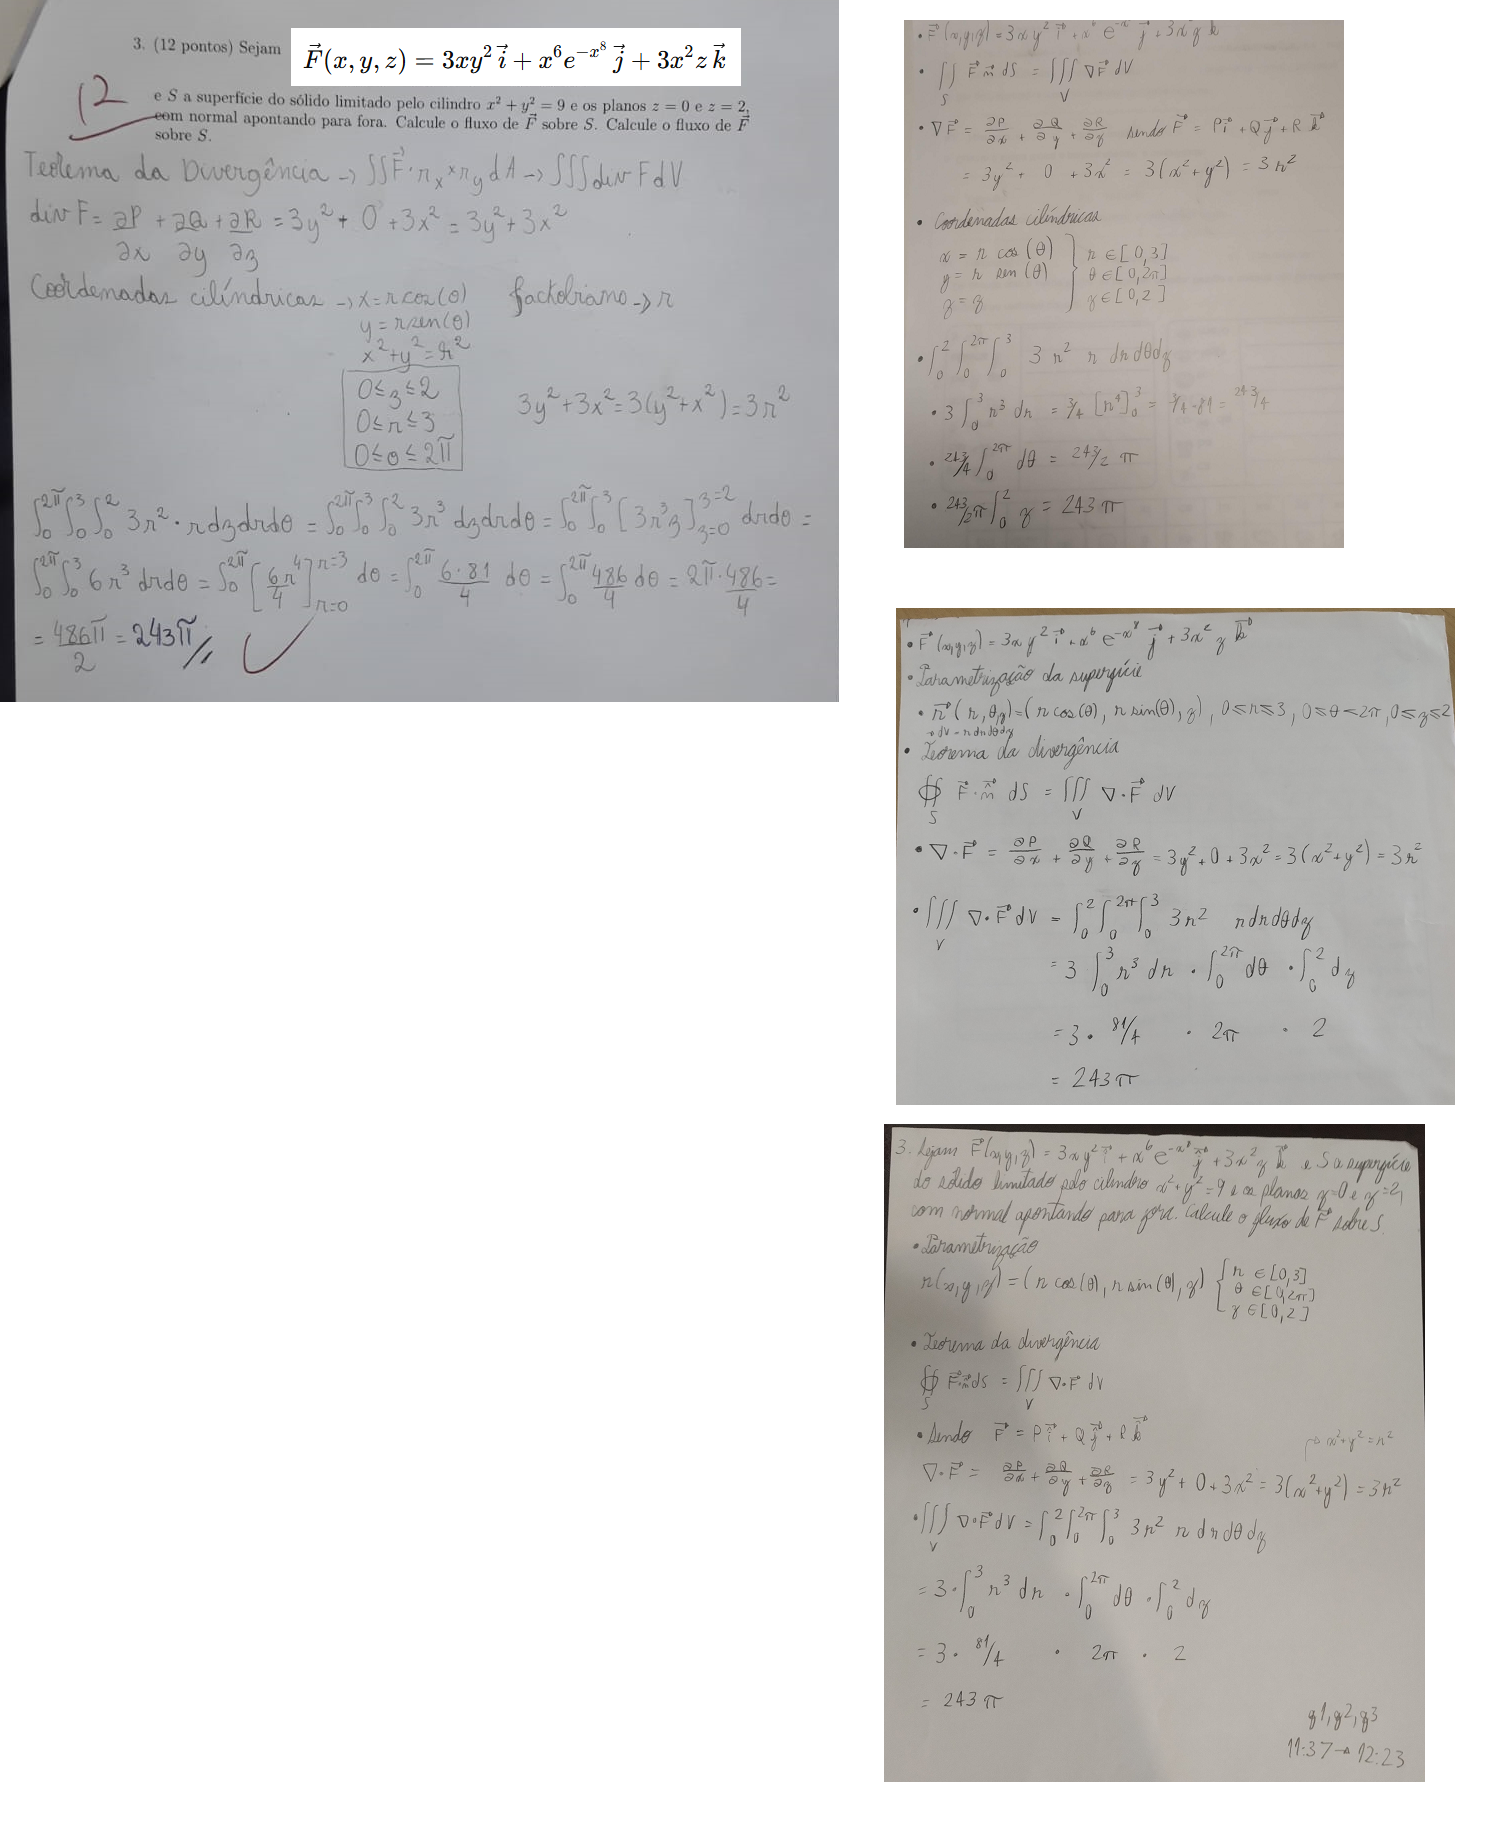 3. (12 pontos) Sejam
F⃗(x, y, z) = 3xy² i⃗ + x⁶e^{-x⁸} j⃗ + 3x²z k⃗
12
e S a superfície do sólido limitado pelo cilindro x² + y² = 9 e os planos z = 0 e z = 2,
com normal apontando para fora. Calcule o fluxo de F⃗ sobre S. Calcule o fluxo de F⃗
sobre S.
Teorema da Divergência → ∬F⃗·r_x×r_y dA → ∭div F dV
div F = ∂P/∂x + ∂Q/∂y + ∂R/∂z = 3y² + 0 + 3x² = 3y² + 3x²
Coordenadas cilíndricas → x = r cos(θ) Jackobiano → r
y = r sen(θ)
x² + y² = r²
0 ≤ z ≤ 2
0 ≤ r ≤ 3
0 ≤ θ ≤ 2π
3y² + 3x² = 3(y² + x²) = 3r²
∫₀^{2π}∫₀³∫₀² 3r²·r dz dr dθ = ∫₀^{2π}∫₀³∫₀² 3r³ dz dr dθ = ∫₀^{2π}∫₀³ [3r³z]_{z=0}^{z=2} dr dθ =
∫₀^{2π}∫₀³ 6r³ dr dθ = ∫₀^{2π} [6r⁴/4]_{r=0}^{r=3} dθ = ∫₀^{2π} 6·81/4 dθ = ∫₀^{2π} 486/4 dθ = 2π·486/4 =
= 486π/2 = 243π//
• F⃗(x,y,z) = 3xy² i⃗ + x⁶ e^{-x⁸} j⃗ + 3x² z k
• ∬_S F⃗ n⃗ dS = ∭_V ∇F⃗ dV
• ∇F⃗ = ∂P/∂x + ∂Q/∂y + ∂R/∂z sendo F⃗ = P i⃗ + Q j⃗ + R k⃗
= 3y² + 0 + 3x² = 3(x² + y²) = 3r²
• Coordenadas cilíndricas
x = r cos(θ) r ∈ [0,3]
y = r sen(θ) θ ∈ [0,2π]
z = z z ∈ [0,2]
• ∫₀²∫₀^{2π}∫₀³ 3r² r dr dθ dz
• 3∫₀³ r³ dr = 3/4 [r⁴]₀³ = 3/4·81 = 243/4
• 243/4 ∫₀^{2π} dθ = 243/2 π
• 243/2 π ∫₀² z = 243π
• F⃗(x,y,z) = 3xy² i⃗ + x⁶ e^{-x⁸} j⃗ + 3x² z k⃗
• Parametrização da superfície
• r⃗(r,θ,z) = (r cos(θ), r sin(θ), z), 0 ≤ r ≤ 3, 0 ≤ θ ≤ 2π, 0 ≤ z ≤ 2
→ dV = r dr dθ dz
• Teorema da divergência
∯_S F⃗·n⃗ dS = ∭_V ∇·F⃗ dV
• ∇·F⃗ = ∂P/∂x + ∂Q/∂y + ∂R/∂z = 3y² + 0 + 3x² = 3(x² + y²) = 3r²
• ∭_V ∇·F⃗ dV = ∫₀²∫₀^{2π}∫₀³ 3r² r dr dθ dz
= 3∫₀³ r³ dr · ∫₀^{2π} dθ · ∫₀² dz
= 3 · 81/4 · 2π · 2
= 243π
3. Sejam F⃗(x,y,z) = 3xy² i⃗ + x⁶ e^{-x⁸} j⃗ + 3x² z k⃗ e S a superfície
do sólido limitado pelo cilindro x² + y² = 9 e os planos z = 0 e z = 2,
com normal apontando para fora. Calcule o fluxo de F⃗ sobre S.
• Parametrização
r(x,y,z) = (r cos(θ), r sin(θ), z) { r ∈ [0,3]
θ ∈ [0,2π]
z ∈ [0,2]
• Teorema da divergência
∯_S F⃗·n⃗ dS = ∭_V ∇·F dV
• Sendo F⃗ = P i⃗ + Q j⃗ + R k⃗
→ x² + y² = r²
∇·F⃗ = ∂P/∂x + ∂Q/∂y + ∂R/∂z = 3y² + 0 + 3x² = 3(x² + y²) = 3r²
• ∭_V ∇·F⃗ dV = ∫₀²∫₀^{2π}∫₀³ 3r² r dr dθ dz
= 3·∫₀³ r³ dr · ∫₀^{2π} dθ · ∫₀² dz
= 3 · 81/4 · 2π · 2
= 243π
g1, g2, g3
11:37 → 12:23